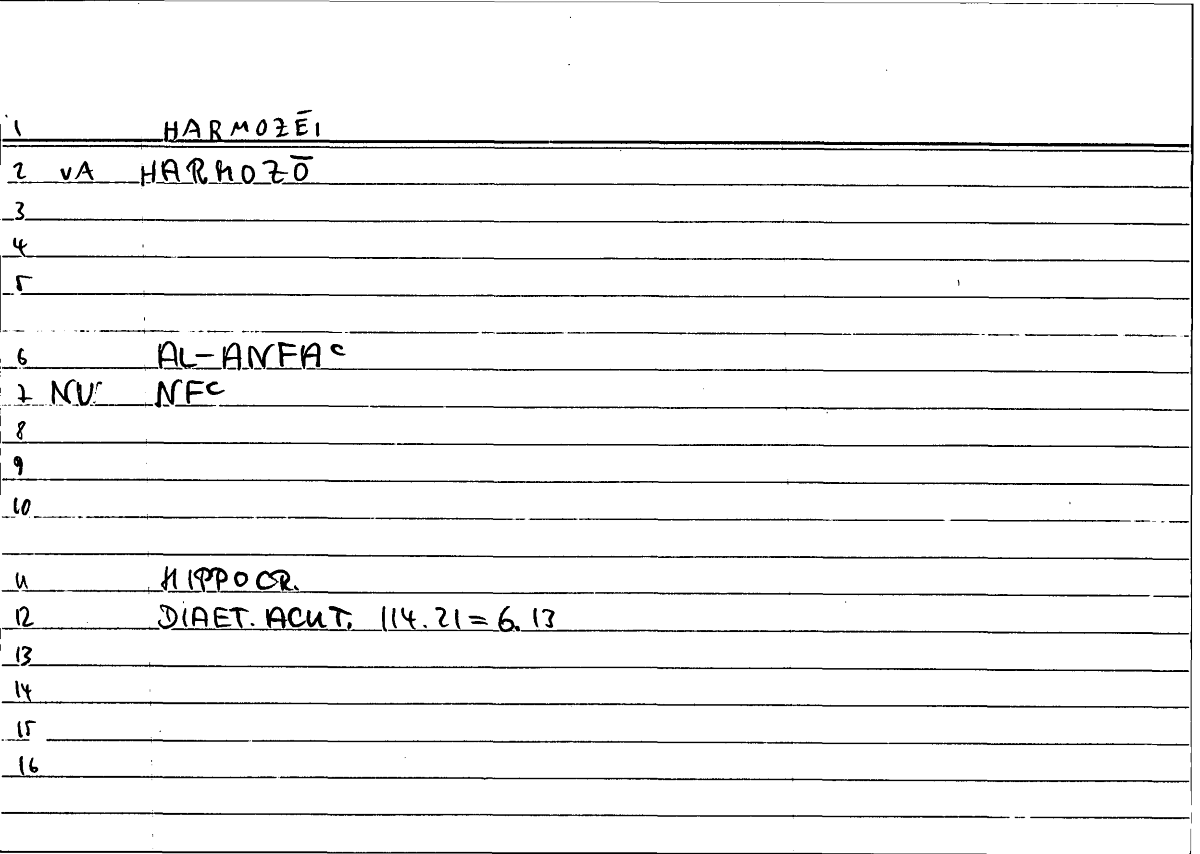 1 HARMOZĒI
2 vA HARMOZŌ
3
4
5
6 AL-ANFAᶜ
7 NV NFᶜ
8
9
10
11 HIPPOCR.
12 DIAET. ACUT. 114.21 = 6.13
13
14
15
16